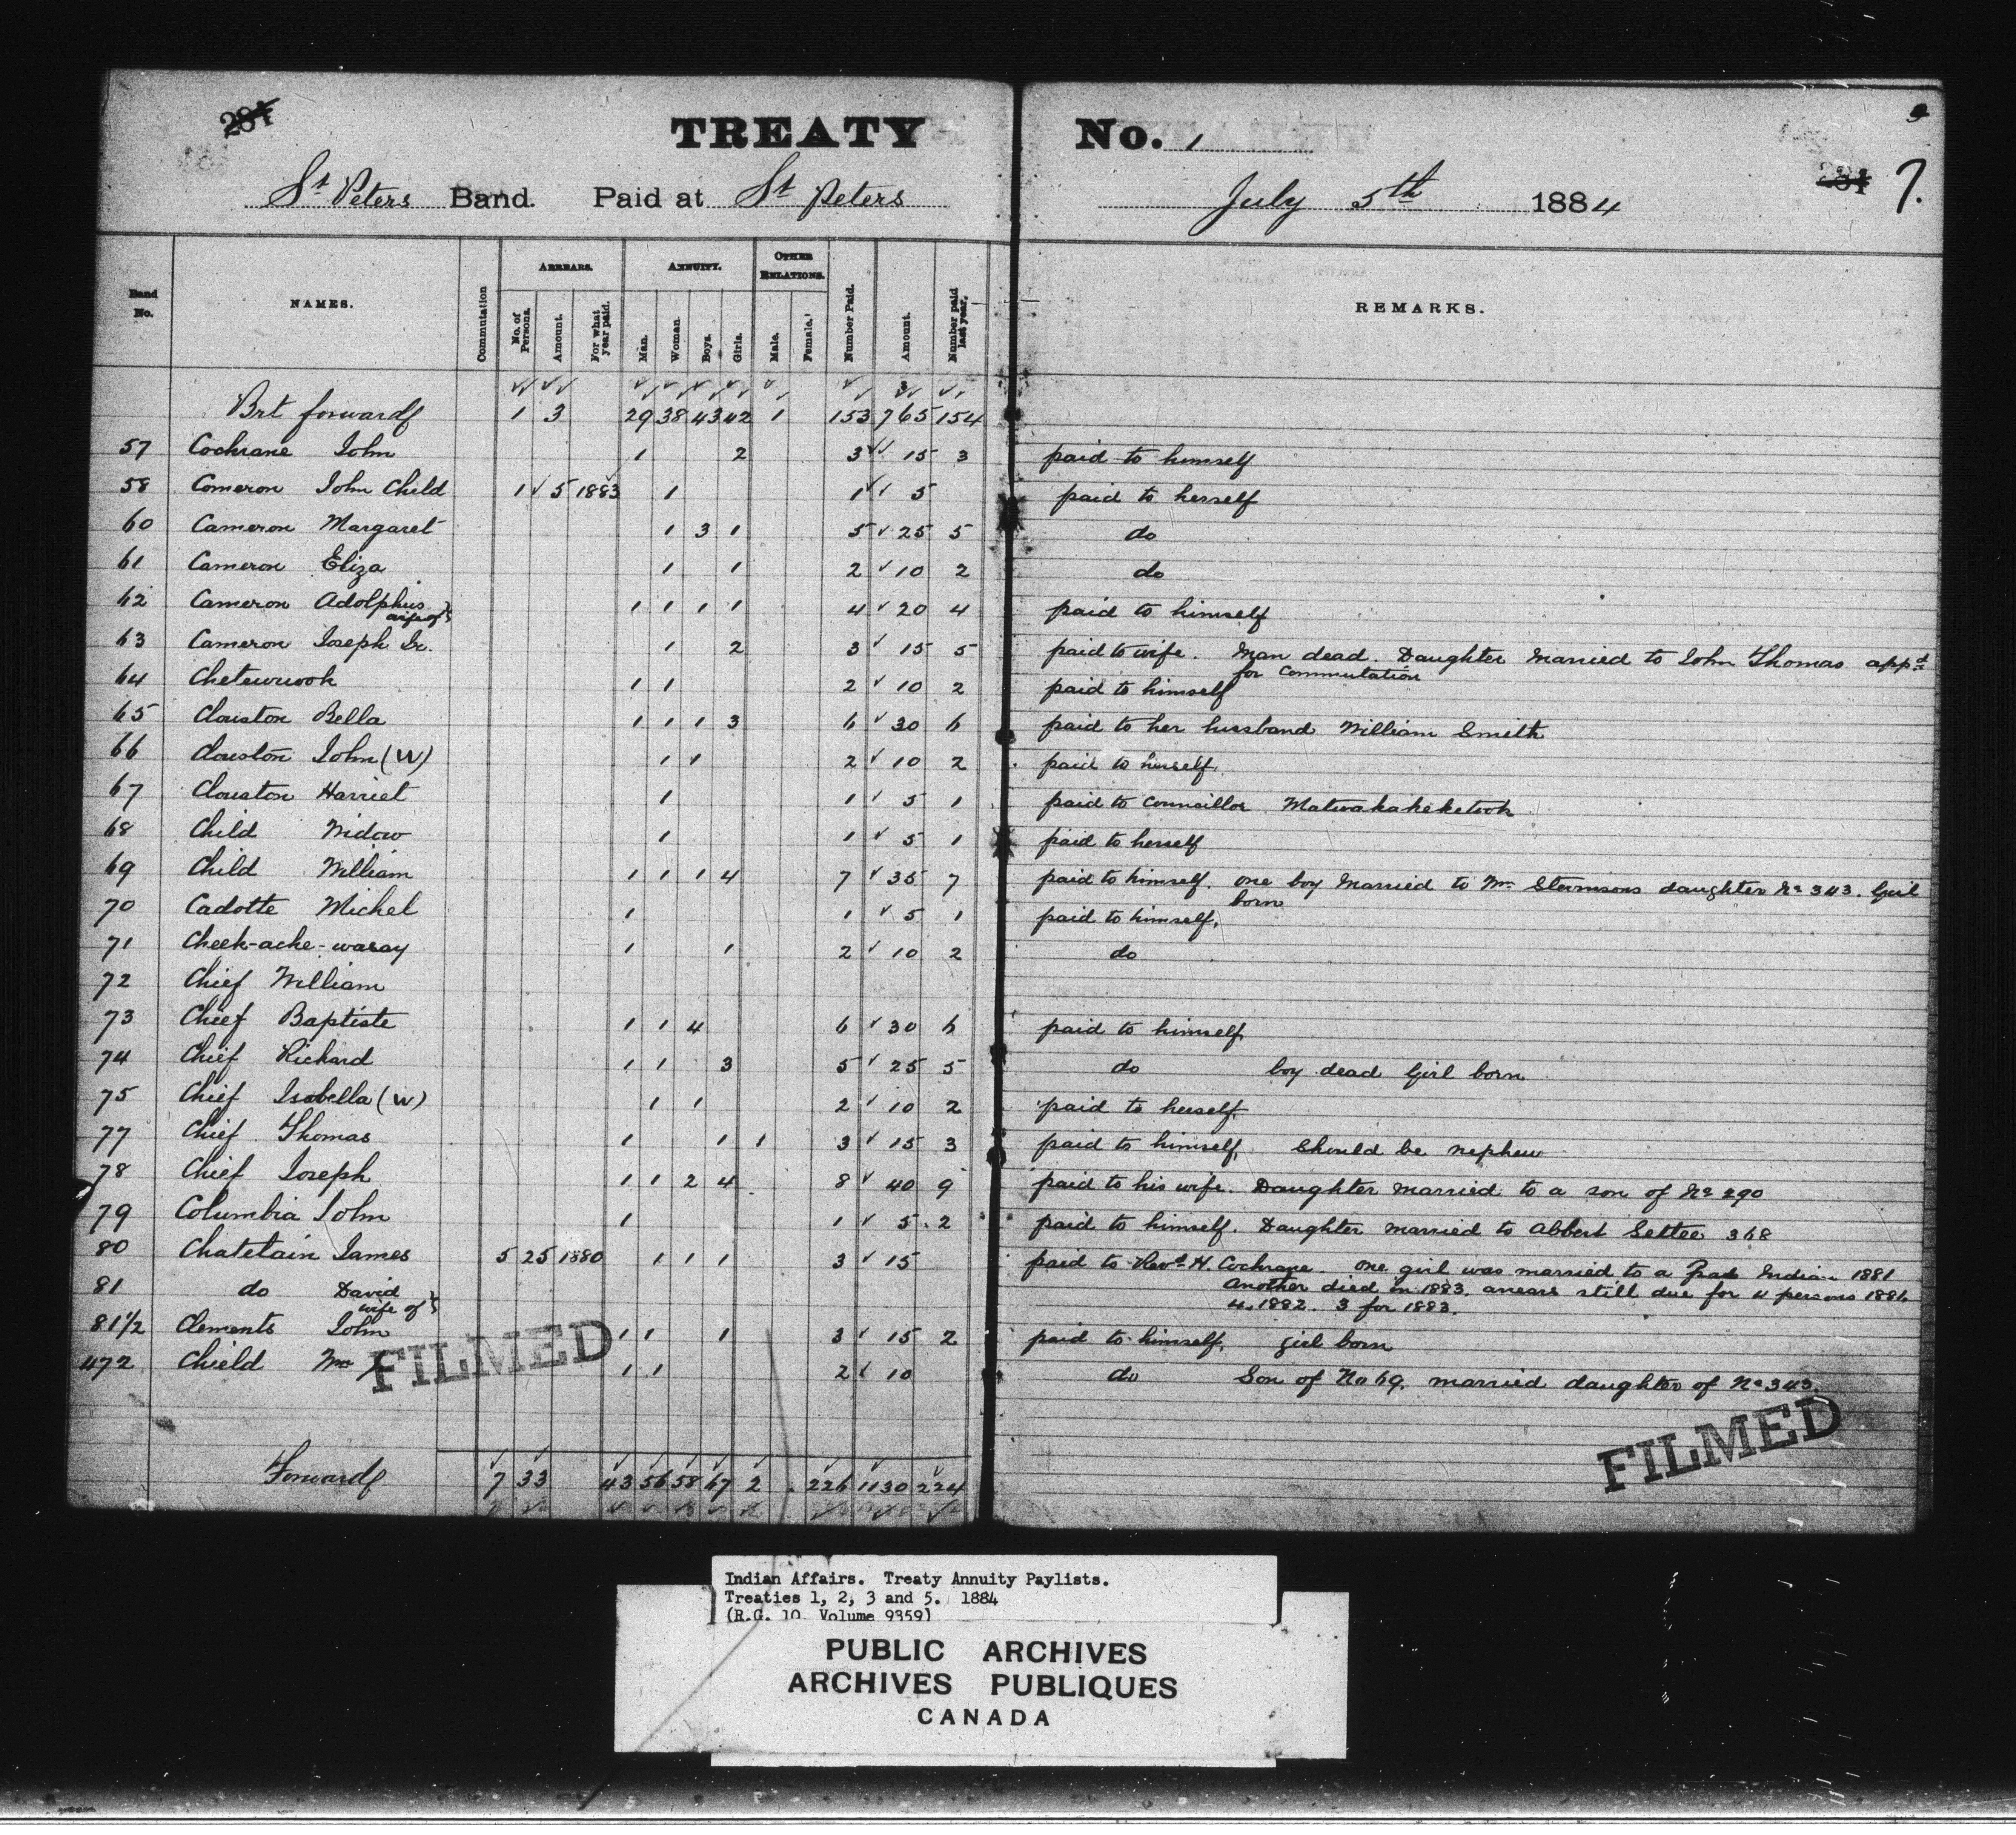 284
TREATY No. 1
9
284 7.
St Peters Band. Paid at St Peters July 5th 1884
Band No. NAMES. Commutation ARREARS. No. of Persons. Amount. For what year paid. ANNUITY. Man. Woman. Boys. Girls. OTHER RELATIONS. Male. Female. Number Paid. Amount. Number paid last year. REMARKS.
Brt forward 1 3 29 38 43 42 1 153 765 154
57 Cochrane John 1 2 3 15 3 paid to himself
58 Comeron John Child 1 5 1883 1 1 5 paid to herself
60 Cameron Margaret 1 3 1 5 25 5 do
61 Cameron Eliza 1 1 2 10 2 do
62 Cameron Adolphus 1 1 1 1 4 20 4 paid to himself
wife of
63 Cameron Joseph Sr. 1 2 3 15 5 paid to wife. Man dead. Daughter Married to John Thomas appd
for Commutation
64 Chetuwook 1 1 2 10 2 paid to himself
65 Clouston Bella 1 1 1 3 6 30 6 paid to her husband William Smith
66 Clouston John (W) 1 1 2 10 2 paid to herself.
67 Clouston Harriet 1 1 5 1 paid to Councillor Matwakakeketook
68 Child Widow 1 1 5 1 paid to herself
69 Child William 1 1 1 4 7 35 7 paid to himself. one boy Married to Wm Stevensons daughter No 343. Girl
born
70 Cadotte Michel 1 1 5 1 paid to himself.
71 Cheek-ache-wasay 1 1 2 10 2 do
72 Chief William
73 Chief Baptiste 1 1 4 6 30 6 paid to himself
74 Chief Richard 1 1 3 5 25 5 do boy dead Girl born
75 Chief Isabella (W) 1 1 2 10 2 paid to herself
77 Chief Thomas 1 1 1 3 15 3 paid to himself. Should be nephew
78 Chief Joseph 1 1 2 4 8 40 9 paid to his wife. Daughter married to a son of No 290
79 Columbia John 1 1 5 2 paid to himself. Daughter married to Abbert Settee 368
80 Chatelain James 5 25 1880 1 1 1 3 15 paid to Revd H. Cochrane. one girl was married to a Indian 1881
another died in 1883. arrears still due for 4 persons 1881
4. 1882. 3 for 1883.
81 do David
wife of
81 1/2 Clements John 1 1 1 3 15 2 paid to himself. girl born
472 Chield Wm 1 1 2 10 do Son of No 69. married daughter of No 343.
FILMED
FILMED
Forward 7 33 43 56 58 67 2 226 1130 224
Indian Affairs. Treaty Annuity Paylists.
Treaties 1, 2, 3 and 5. 1884
(R.G. 10 Volume 9359)
PUBLIC ARCHIVES
ARCHIVES PUBLIQUES
CANADA